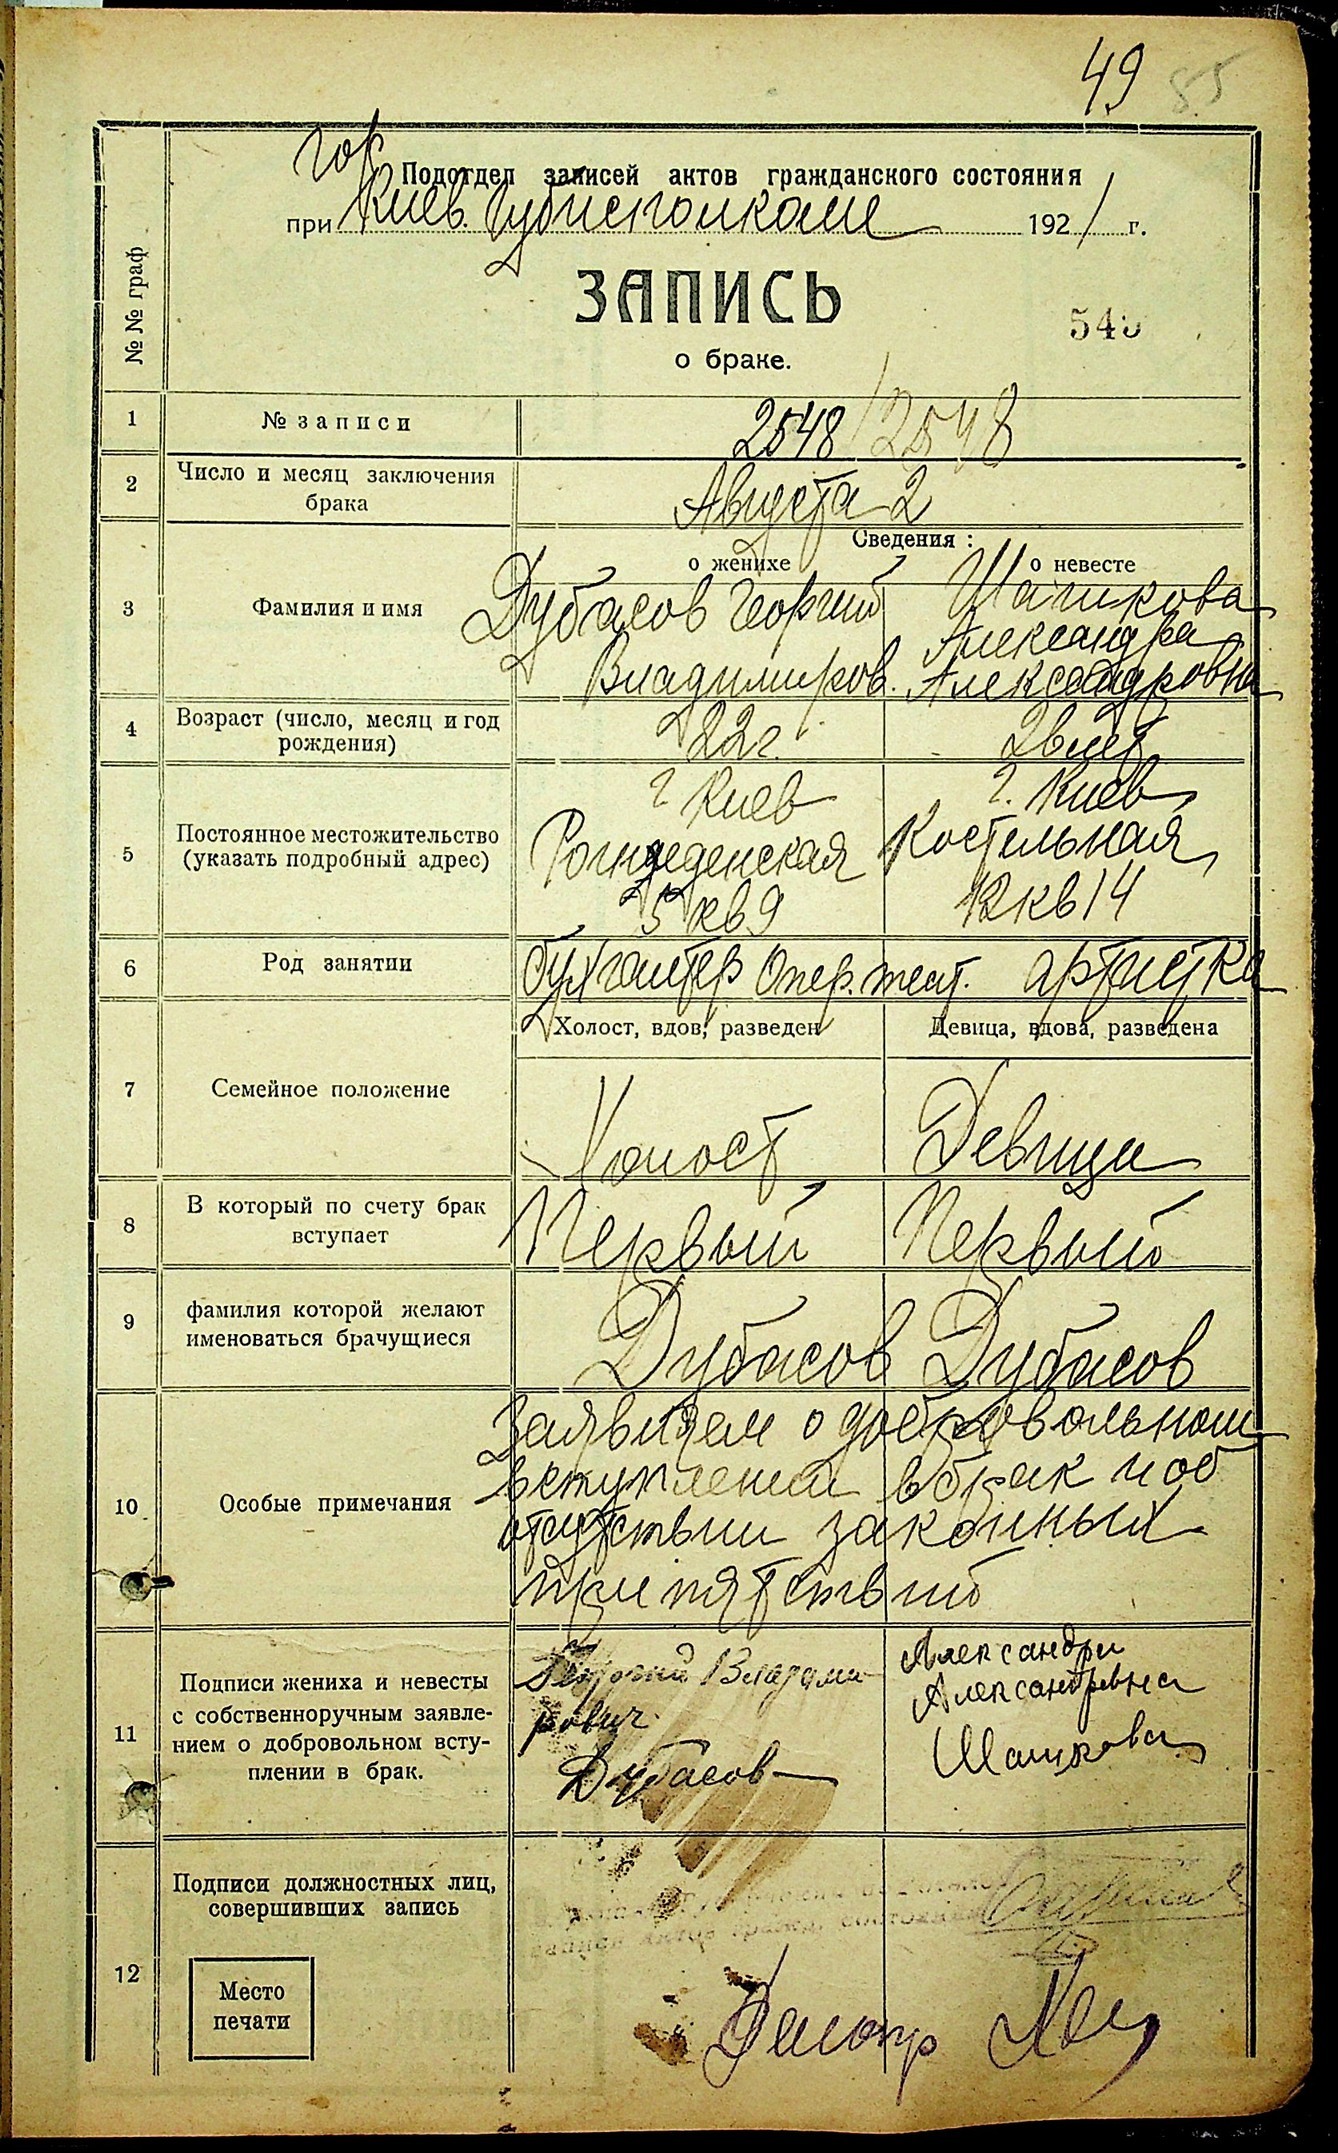 49 85
гор
Подотдел записей актов гражданского состояния
при Киев. Губисполкоме 1921 г.
ЗАПИСЬ
о браке.
№ № граф
1 № записи 2548 / 2548
2 Число и месяц заключения
брака
Августа 2
Сведения :
о женихе о невесте
3 Фамилия и имя
Дубасов Георгий
Владимиров.
Шашкова
Александра
Александровна
4 Возраст (число, месяц и год
рождения)
22 г. лет
5 Постоянное местожительство
(указать подробный адрес)
г Киев
5 кв 9
г. Киев
Костельная
12 кв 14
6 Род занятии
бухгалтер Опер. теат. артистка
Холост, вдов, разведен Девица, вдова, разведена
7 Семейное положение
Холост Девица
8 В который по счету брак
вступает
Первый Первый
9 фамилия которой желают
именоваться брачущиеся
Дубасов Дубасов
10 Особые примечания
Заявляем о добровольном
вступлении в брак и об
отсутствии законных
препятствий
11 Подписи жениха и невесты
с собственноручным заявле-
нием о добровольном всту-
плении в брак.
Георгий Владими-
рович
Дубасов
Александра
Александровна
Шашкова
12 Подписи должностных лиц,
совершивших запись
Место
печати
Делопр